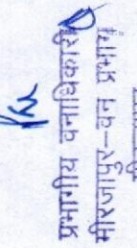 प्रभागीय वनाधिकारी
मीरजापुर-वन प्रभाग